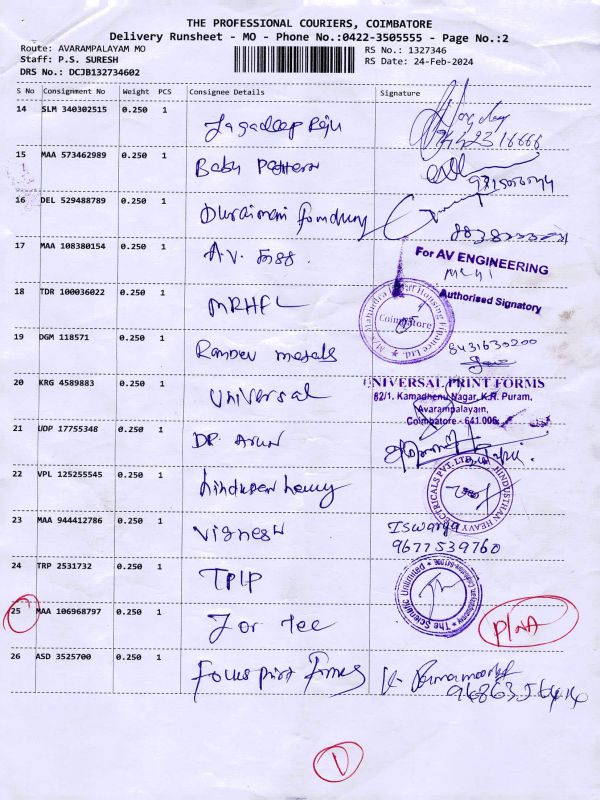 THE PROFESSIONAL COURIERS, COIMBATORE
Delivery Runsheet - MO - Phone No.:0422-3505555 - Page No.:2
Route: AVARAMPALAYAM MO
RS No.: 1327346
Staff: P.S. SURESH
RS Date: 24-Feb-2024
DRS No.: DCJB132734602
S No Consignment No Weight PCS Consignee Details Signature
14 SLM 340302515 0.250 1 Jagadeep Raju
15 MAA 573462989 0.250 1 Baby
16 DEL 529488789 0.250 1 Duraimani
17 MAA 108380154 0.250 1 A.V.
For AV ENGINEERING
Authorised Signatory
18 TDR 100036022 0.250 1 MRHFL
M/s. Mahindra Rural Housing Finance Ltd.
Coimbatore
19 DGM 118571 0.250 1 Ramdev metals 8431630200
20 KRG 4589883 0.250 1 Universal
UNIVERSAL PRINT FORMS
62/1, Kamadhenu Nagar, K.R. Puram,
Avarampalayam,
Coimbatore - 641 006
21 UDP 17755348 0.250 1 DR. Arun
22 VPL 125255545 0.250 1
HINDUSTHAN HEAVY ELECTRICALS PVT. LTD.
23 MAA 944412786 0.250 1 Vignesh Iswarya
9677539760
24 TRP 2531732 0.250 1 TPLP
The Scientific Unlimited
25 MAA 106968797 0.250 1 For Tec
P/NA
26 ASD 3525700 0.250 1 Focus print Forms
1